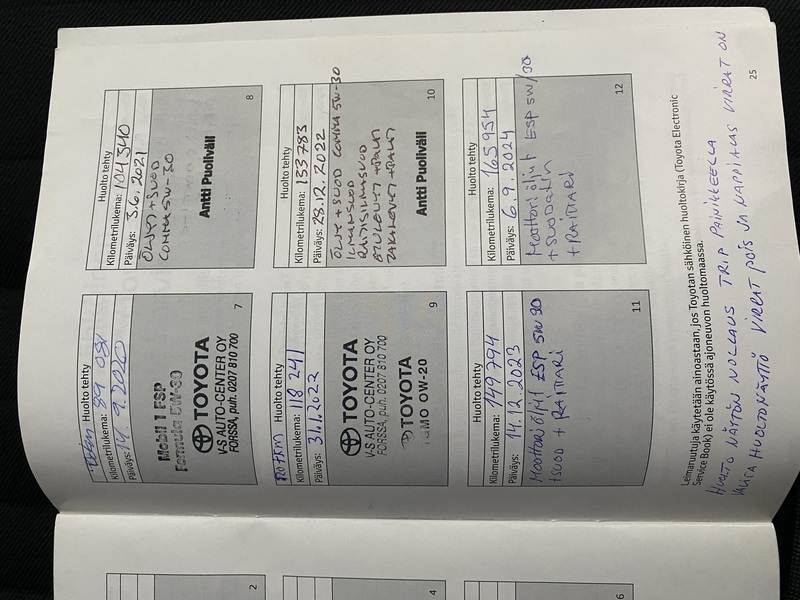 Huolto tehty
Kilometrilukema: 89 081
Päiväys: 14.9.2020
Mobil 1 ESP
Formula 5W-30
TOYOTA
V-S AUTO-CENTER OY
FORSSA, puh. 0207 810 700
7
Huolto tehty
Kilometrilukema: 104 340
Päiväys: 3.6.2021
ÖLJYT+SUOD
COMMA 5W-30
Antti Puoliväli
8
Huolto tehty
Kilometrilukema: 118 241
Päiväys: 31.1.2022
TOYOTA
V-S AUTO-CENTER OY
FORSSA, puh. 0207 810 700
TOYOTA
0W-20
9
Huolto tehty
Kilometrilukema: 133 783
Päiväys: 28.12.2022
ÖLJYT+SUOD COMMA 5W-30
ILMANSUOD
RAITISILMASUOD
ETULEVYT+PALAT
TAKALEVYT+PALAT
Antti Puoliväli
10
Huolto tehty
Kilometrilukema: 149 794
Päiväys: 14.12.2023
Moottoriöljyt ESP 5W30
+SUOD + RAITTARI
11
Huolto tehty
Kilometrilukema: 165 954
Päiväys: 6.9.2024
Moottori öljyt ESP 5W/30
+ SUODATIN
+ RAITTARI
12
Leimaruutuja käytetään ainoastaan, jos Toyotan sähköinen huoltokirja (Toyota Electronic
Service Book) ei ole käytössä ajoneuvon huoltomaassa.
HUOLTO NÄYTÖN NOLLAUS TRIP PAINIKKEELLA
VALITA HUOLTONÄYTTÖ VIRRAT POIS JA NAPPI ALAS VIRRAT ON
25
2
4
6